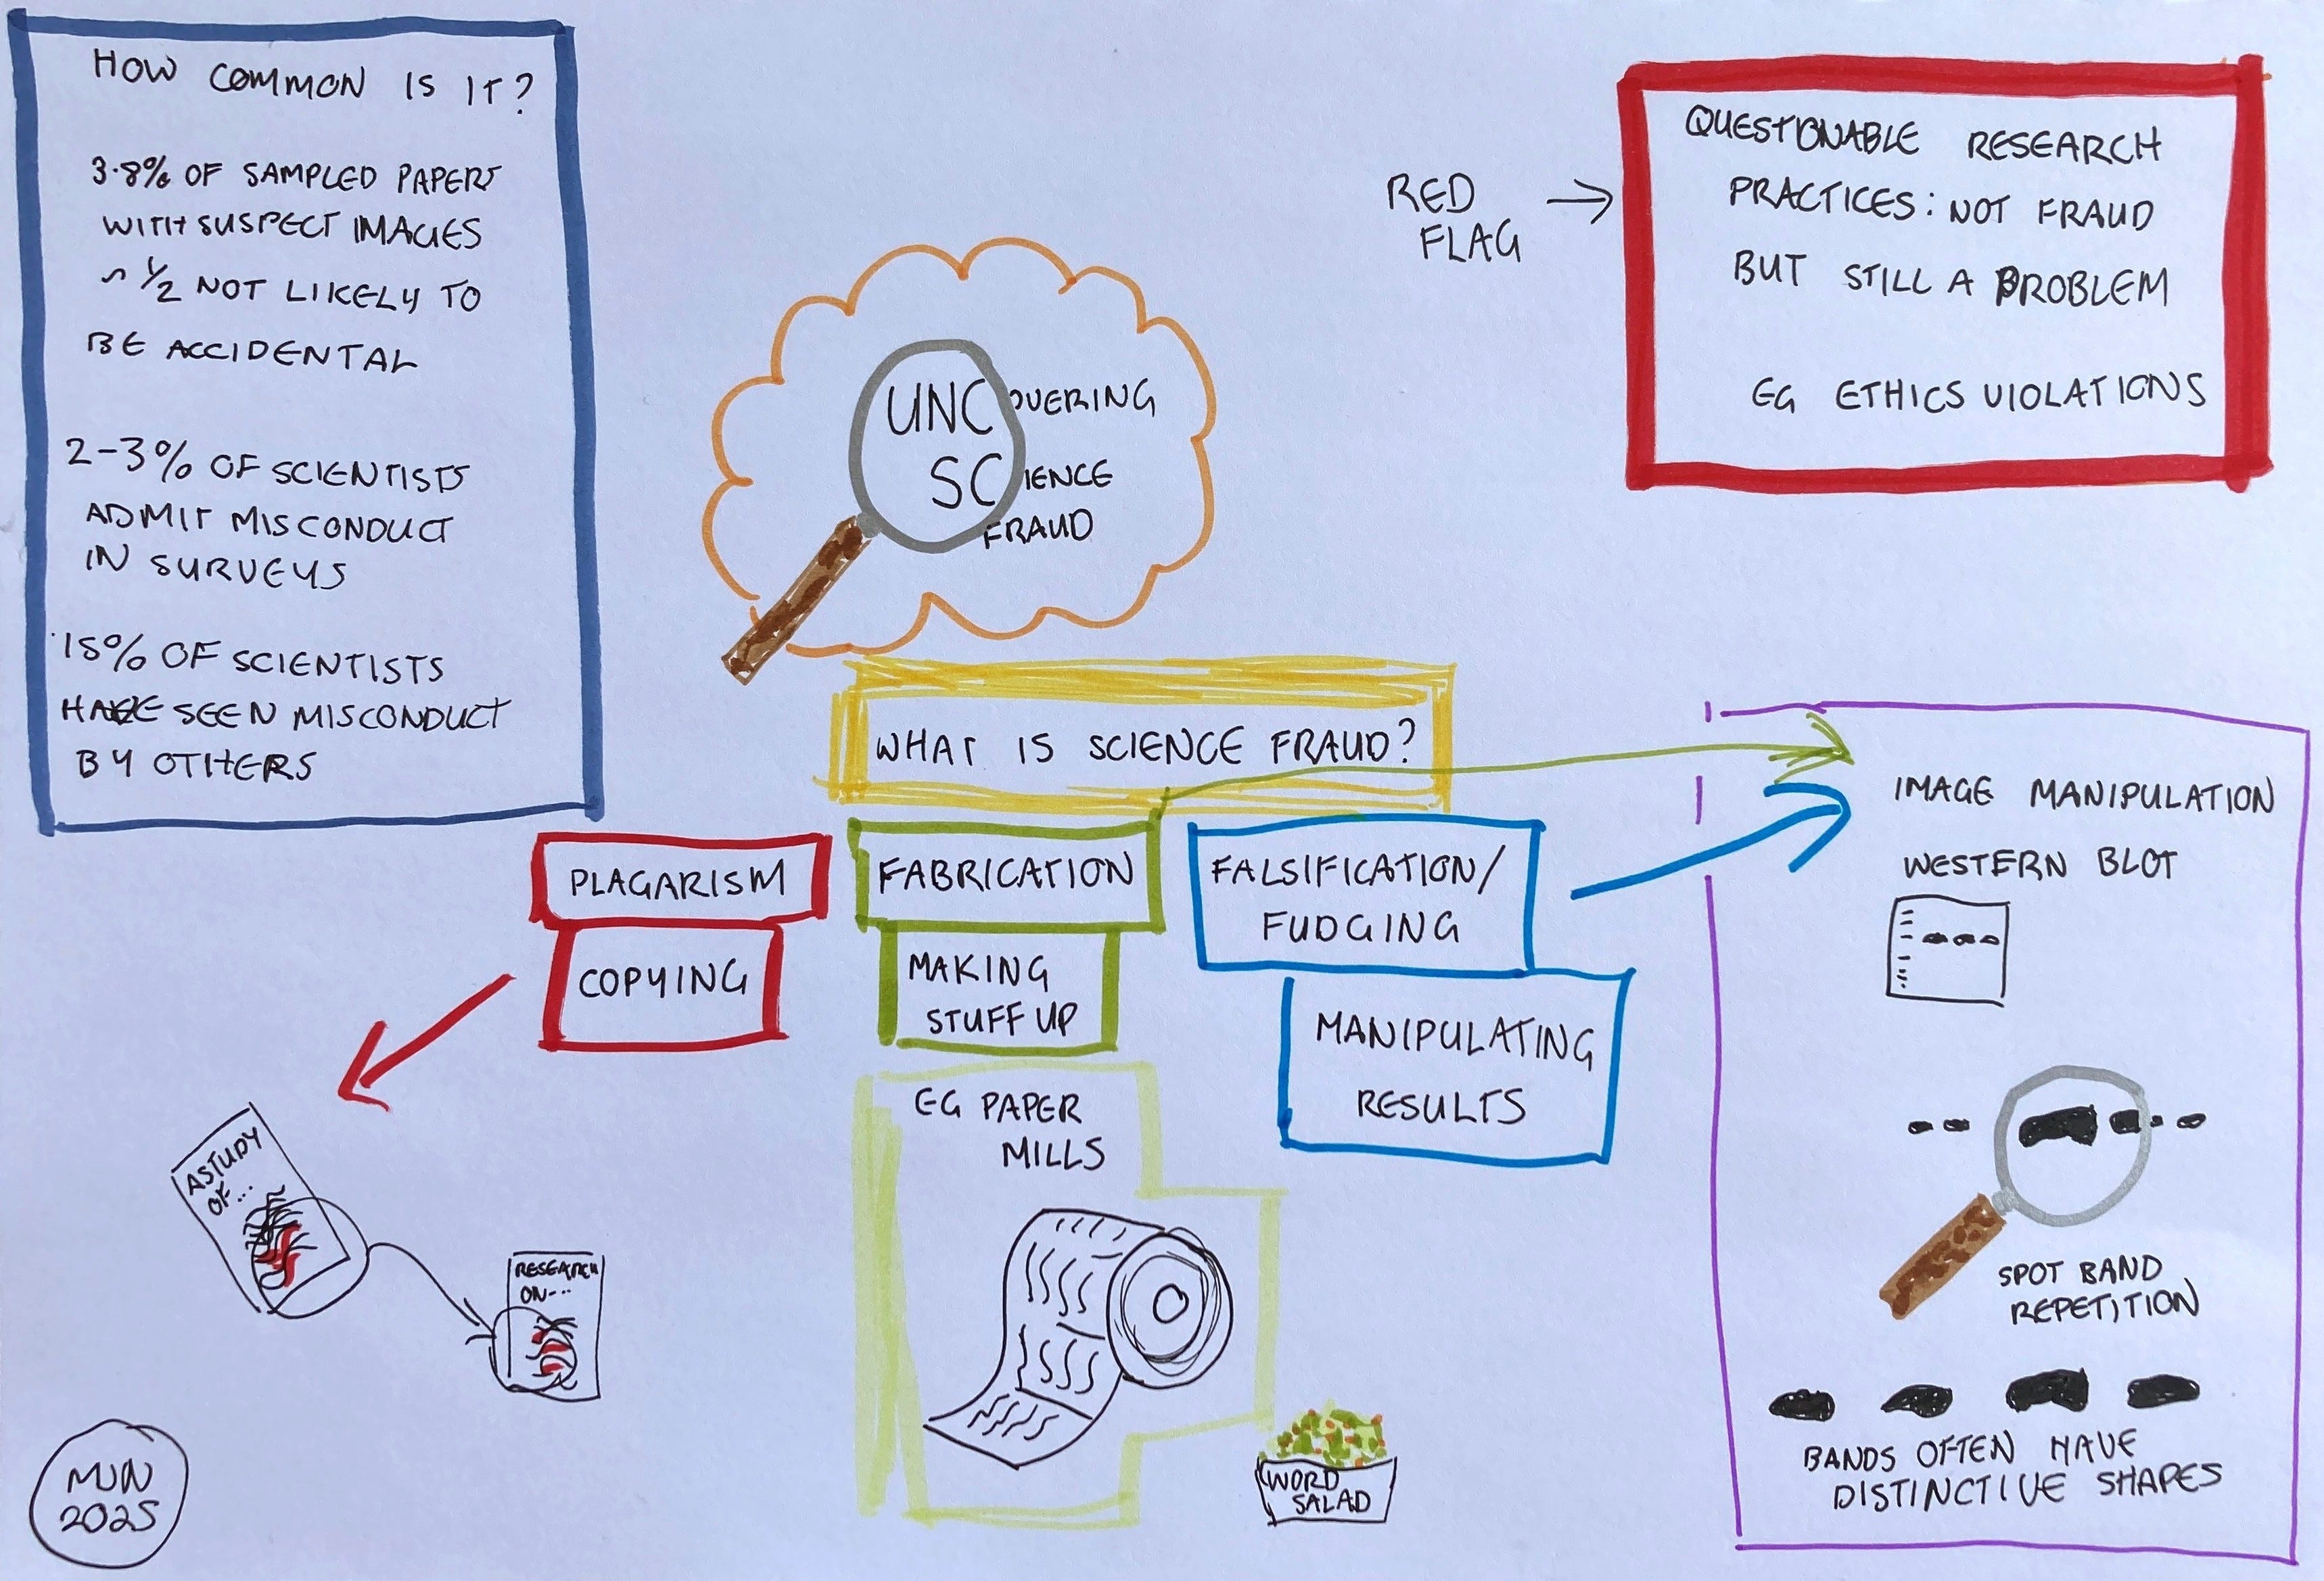 HOW COMMON IS IT?
3.8% OF SAMPLED PAPERS
WITH SUSPECT IMAGES
~ 1/2 NOT LIKELY TO
BE ACCIDENTAL
2-3% OF SCIENTISTS
ADMIT MISCONDUCT
IN SURVEYS
15% OF SCIENTISTS
HAVE SEEN MISCONDUCT
BY OTHERS
UNCOVERING
SCIENCE
FRAUD
RED
FLAG
QUESTIONABLE RESEARCH
PRACTICES: NOT FRAUD
BUT STILL A PROBLEM
EG ETHICS VIOLATIONS
WHAT IS SCIENCE FRAUD?
PLAGARISM
COPYING
FABRICATION
MAKING
STUFF UP
EG PAPER
MILLS
FALSIFICATION/
FUDGING
MANIPULATING
RESULTS
A STUDY
OF...
RESEARCH
ON---
WORD
SALAD
IMAGE MANIPULATION
WESTERN BLOT
SPOT BAND
REPETITION
BANDS OFTEN HAVE
DISTINCTIVE SHAPES
MUN
2025